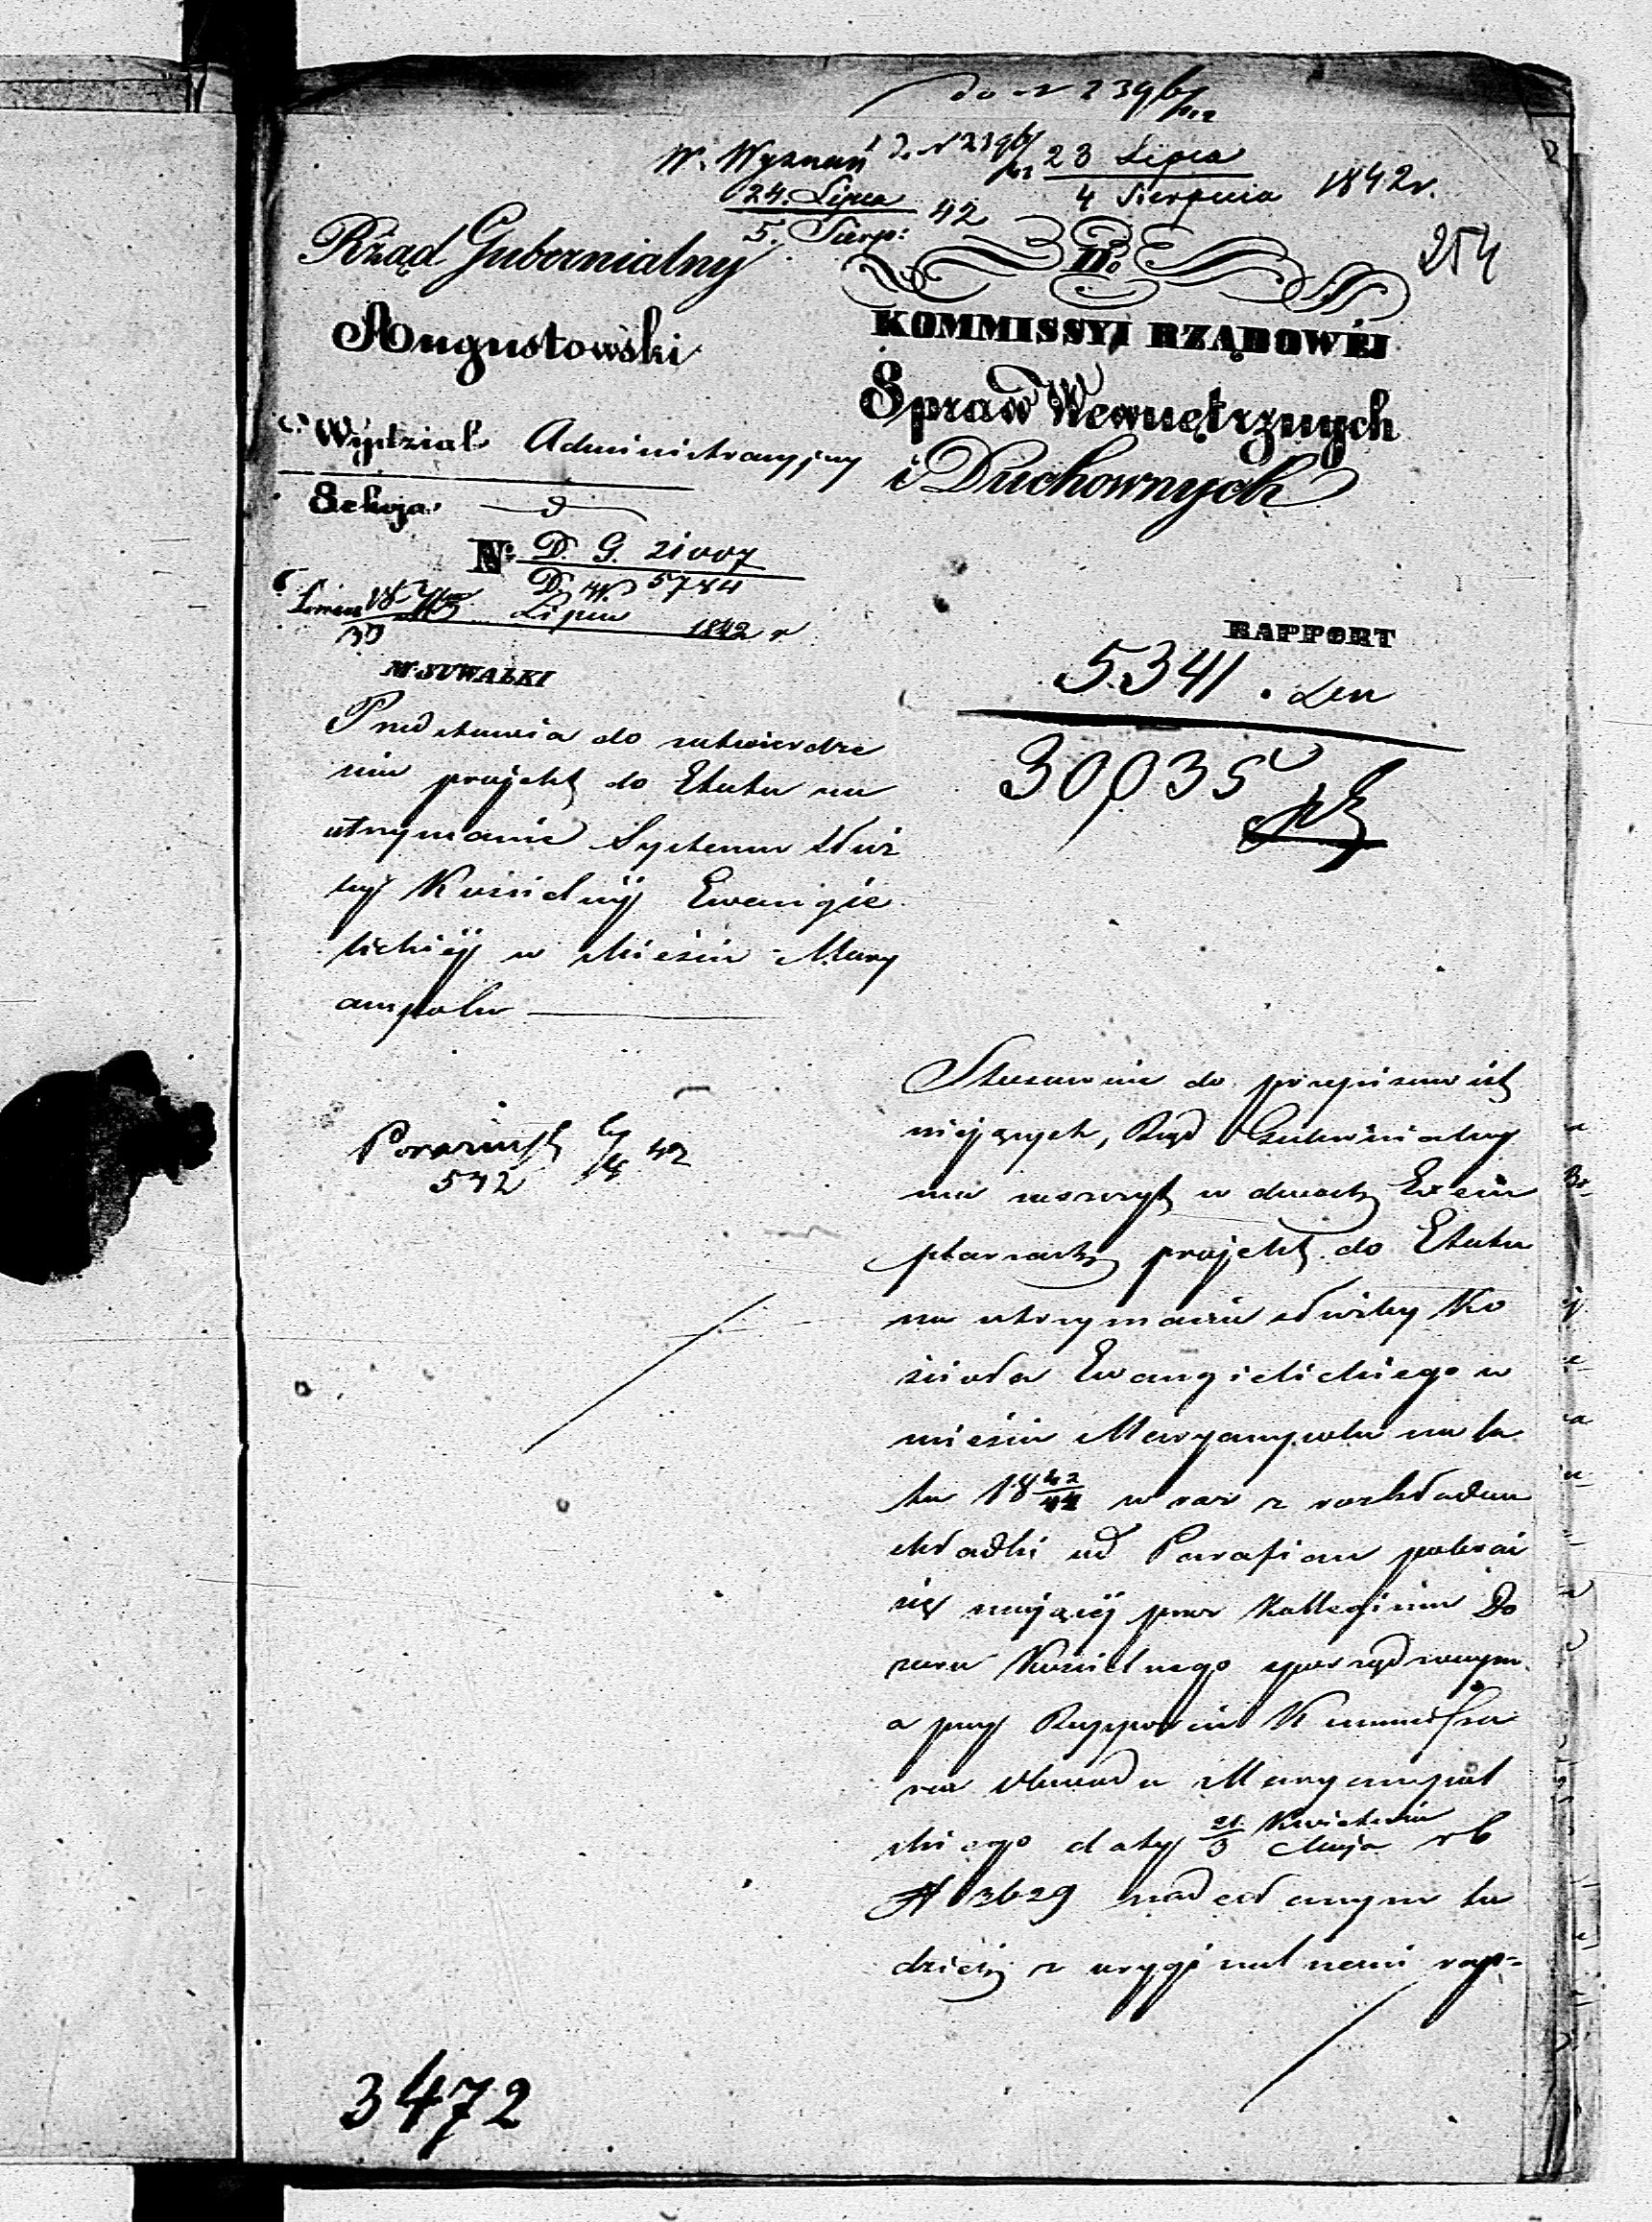 do N 2396/42
W. Wyznań D. N 2396/42
23 Lipca
4 Sierpnia 1842 r.
24. Lipca
5. Sierp: 42
254
Rząd Gubernialny
Augustowski
Wydział Administracyjny
Sekcja
No D. G. 21007
D. W. 5784
18
30 Lipca 1842 r
M. SUWAŁKI
Przedstawia do zatwierdze
nia projekt do Etatu na
utrzymanie Systemu służ
by Kościelnej Ewangie
lickiéj w Mieście Mary
ampolu
532 42
Do
KOMMISSYI RZĄDOWÉJ
Spraw Wewnętrznych
i Duchownych
RAPPORT
5341.
30,035
Stosownie do przepisów ist
niejących, Rząd Gubernialny
ma zaszczyt w dwóch Exem
plarzach projekt do Etatu
na utrzymanie służby Ko
ścioła Ewangielickiego w
mieście Maryampolu na la
ta 18 42/44 w raz z rozkładem
składki od Parafian pobrać
się mającéj przez Kollegium Do
zoru Kościelnego sporządzonym
a przy Rapporcie Kommissa
rza Obwodu Maryampol
skiego daty 21 Kwietnia
3 Maja r b
N 3629 nadesłanym tu
dzież z oryginalnemi rap=
3472